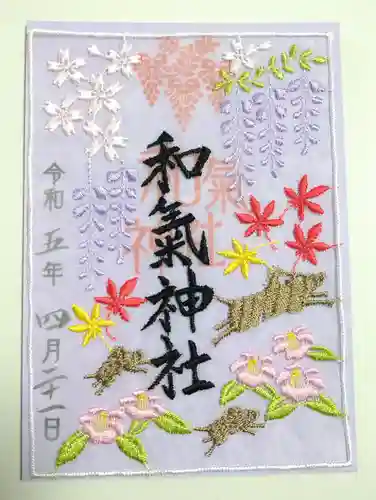 和氣神社
和氣
神社
令和五年四月二十一日